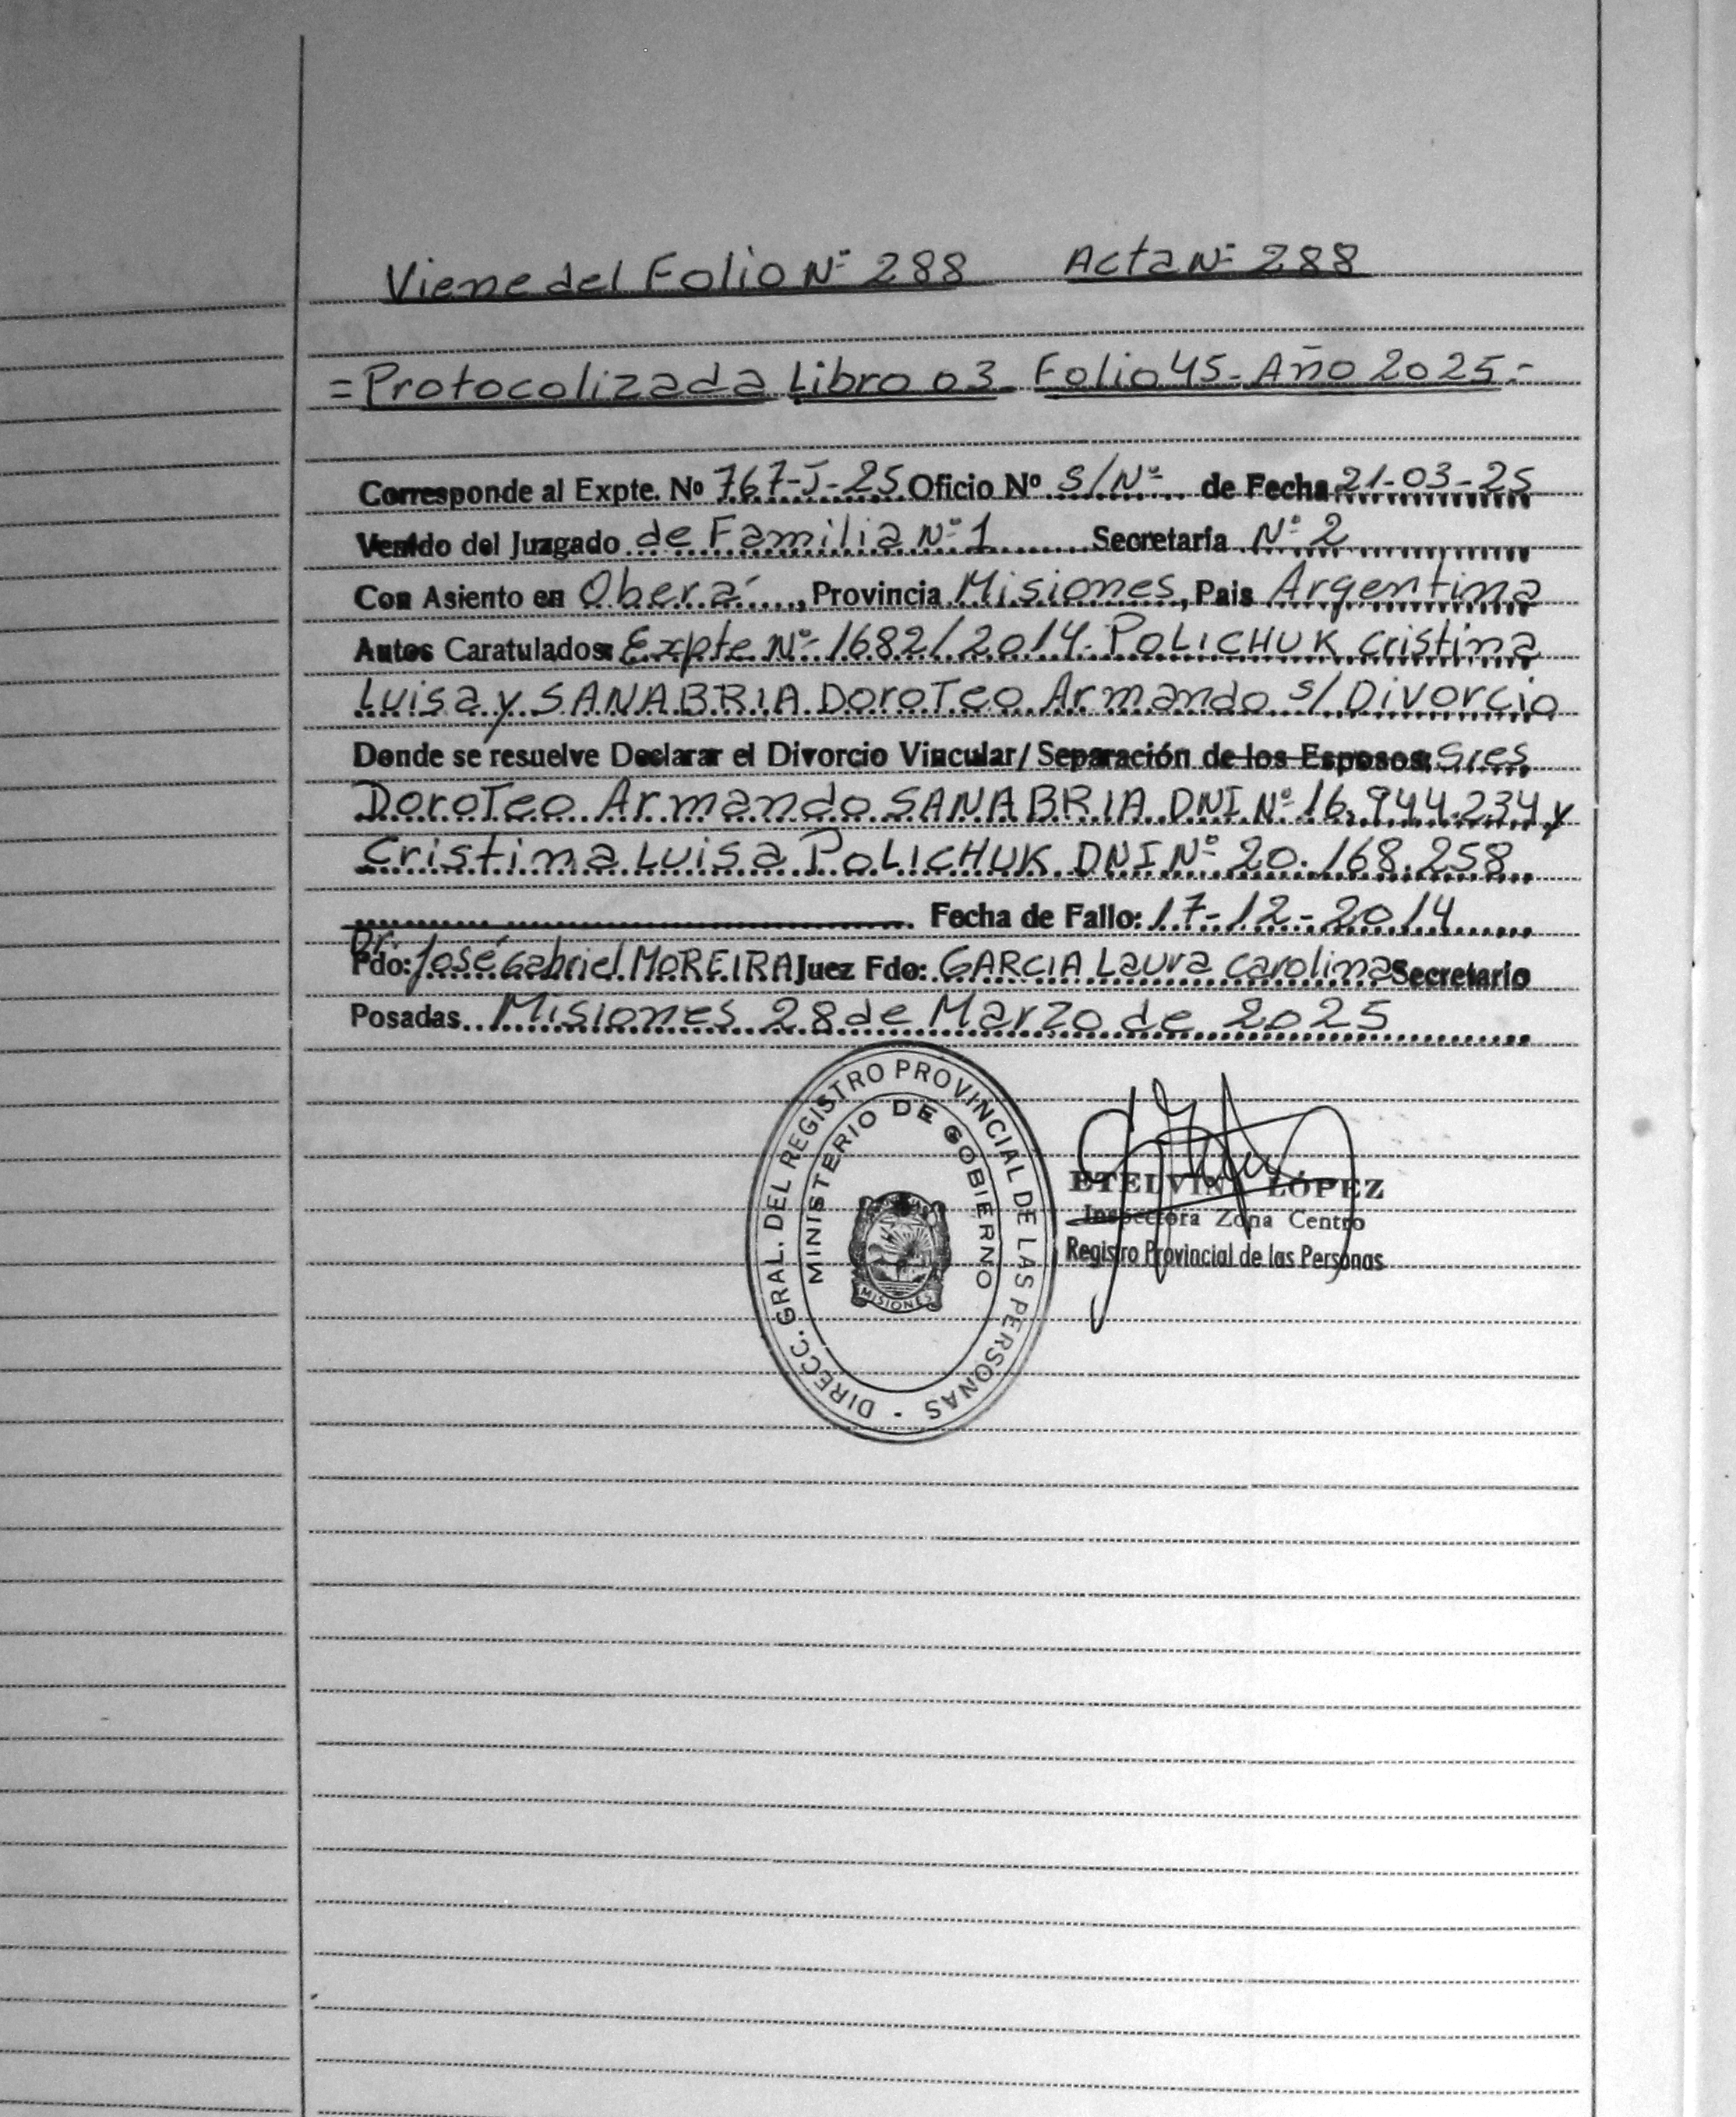 Viene del Folio Nº 288 Acta Nº 288
= Protocolizada Libro 03 - Folio 45 - Año 2025.-
Corresponde al Expte. Nº 767-J-25 Oficio Nº S/Nº de Fecha 21-03-25
Venido del Juzgado de Familia Nº 1 Secretaría Nº 2
Con Asiento en Oberá, Provincia Misiones, Pais Argentina
Autos Caratulados: Expte Nº 1682/2014. POLICHUK Cristina
Luisa y SANABRIA Doroteo Armando s/ Divorcio
Donde se resuelve Declarar el Divorcio Vincular/ Separación de los Esposos: Sres
Doroteo Armando SANABRIA DNI Nº 16.944.234 y
Cristina Luisa POLICHUK DNI Nº 20.168.258
Fecha de Fallo: 17-12-2014
Fdo: Dr. José Gabriel MOREIRA Juez Fdo: GARCIA Laura Carolina Secretario
Posadas Misiones 28 de Marzo de 2025
DIRECC. GRAL. DEL REGISTRO PROVINCIAL DE LAS PERSONAS -
MINISTERIO DE GOBIERNO
MISIONES
ETELVINA LÓPEZ
Inspectora Zona Centro
Registro Provincial de las Personas